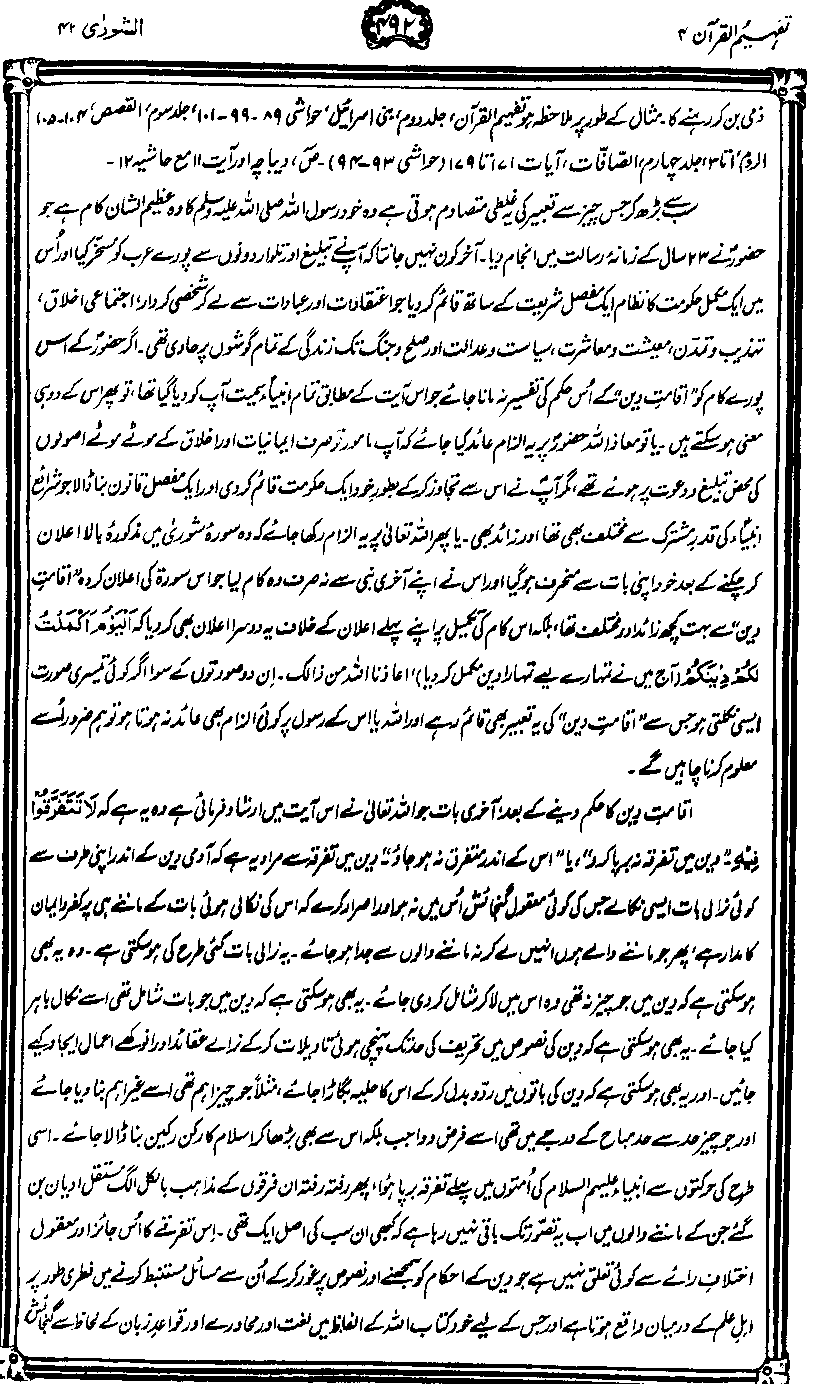 تفہیم القرآن ۴
۴۹۲
الشوریٰ ۴۲
ذمی بن کر رہنے کا۔ مثال کے طور پر ملاحظہ ہو تفہیم القرآن، جلد دوم، بنی اسرائیل، حواشی ۸۹-۹۹-۱۰۱، جلد سوم، القصص، ۱۰۴-۱۰۵
الروم، ۱ تا ۳، جلد چہارم، الصّافّات، آیات ۱۷۱ تا ۱۷۹ (حواشی ۹۳-۹۴)- صٓ، دیباچہ اور آیت ۱۱ مع حاشیہ ۱۲-
سب سے بڑھ کر جس چیز سے تعبیر کی یہ غلطی متصادم ہوتی ہے وہ خود رسول اللہ صلی اللہ علیہ وسلم کا وہ عظیم الشان کام ہے جو
حضورؐ نے ۲۳ سال کے زمانۂ رسالت میں انجام دیا۔ آخر کون نہیں جانتا کہ آپ نے تبلیغ اور تلوار دونوں سے پورے عرب کو مسخّر کیا اور اُس
میں ایک مکمل حکومت کا نظام ایک مفصل شریعت کے ساتھ قائم کر دیا جو اعتقادات اور عبادات سے لے کر شخصی کردار، اجتماعی اخلاق،
تہذیب و تمدّن، معیشت و معاشرت، سیاست و عدالت اور صلح و جنگ تک زندگی کے تمام گوشوں پر حاوی تھی۔ اگر حضورؐ کے اس
پورے کام کو ”اقامتِ دین“ کے اُس حکم کی تفسیر نہ مانا جائے جو اس آیت کے مطابق تمام انبیاءؑ سمیت آپ کو دیا گیا تھا، تو پھر اس کے دو ہی
معنی ہو سکتے ہیں۔ یا تو معاذ اللہ حضورؐ پر یہ الزام عائد کیا جائے کہ آپ مامور تو صرف ایمانیات اور اخلاق کے موٹے موٹے اصولوں
کی محض تبلیغ و دعوت پر ہوئے تھے، مگر آپؐ نے اس سے تجاوز کر کے بطورِ خود ایک حکومت قائم کر دی اور ایک مفصل قانون بنا ڈالا جو شرائع
انبیاءؑ کی قدرِ مشترک سے مختلف بھی تھا اور زائد بھی۔ یا پھر اللہ تعالیٰ پر یہ الزام رکھا جائے کہ وہ سورۂ شوریٰ میں مذکورۂ بالا اعلان
کر چکنے کے بعد خود اپنی بات سے منحرف ہو گیا اور اس نے اپنے آخری نبی سے نہ صرف وہ کام لیا جو اس سورۃ کی اعلان کردہ ”اقامتِ
دین“ سے بہت کچھ زائد اور مختلف تھا، بلکہ اس کام کی تکمیل پر اپنے پہلے اعلان کے خلاف یہ دوسرا اعلان بھی کر دیا کہ اَلْیَوْمَ اَکْمَلْتُ
لَکُمْ دِیْنَکُمْ (آج میں نے تمہارے لیے تمہارا دین مکمل کر دیا)، اعاذنا اللہ من ذالک۔ اِن دو صورتوں کے سوا اگر کوئی تیسری صورت
ایسی نکلتی ہو جس سے ”اقامتِ دین“ کی یہ تعبیر بھی قائم رہے اور اللہ یا اس کے رسول پر کوئی الزام بھی عائد نہ ہوتا ہو تو ہم ضرور اُسے
معلوم کرنا چاہیں گے۔
اقامتِ دین کا حکم دینے کے بعد، آخری بات جو اللہ تعالیٰ نے اس آیت میں ارشاد فرمائی ہے وہ یہ ہے کہ لَا تَتَفَرَّقُوْا
فِیْہِ ”دین میں تفرقہ نہ برپا کرو“، یا ”اس کے اندر متفرق نہ ہو جاؤ“ دین میں تفرقہ سے مراد یہ ہے کہ آدمی دین کے اندر اپنی طرف سے
کوئی نرالی بات ایسی نکالے جس کی کوئی معقول گنجائش اُس میں نہ ہو اور اصرار کرے کہ اس کی نکالی ہوئی بات کے ماننے ہی پر کفر و ایمان
کا مدار ہے، پھر جو ماننے والے ہوں انہیں لے کر نہ ماننے والوں سے جدا ہو جائے۔ یہ نرالی بات کئی طرح کی ہو سکتی ہے۔ وہ یہ بھی
ہو سکتی ہے کہ دین میں جو چیز نہ تھی وہ اس میں لا کر شامل کر دی جائے۔ یہ بھی ہو سکتی ہے کہ دین میں جو بات شامل تھی اسے نکال باہر
کیا جائے۔ یہ بھی ہو سکتی ہے کہ دین کی نصوص میں تحریف کی حد تک پہنچی ہوئی تاویلات کر کے نرالے عقائد اور انوکھے اعمال ایجاد کیے
جائیں۔ اور یہ بھی ہو سکتی ہے کہ دین کی باتوں میں ردّ و بدل کر کے اس کا حلیہ بگاڑا جائے، مثلاً جو چیز اہم تھی اسے غیر اہم بنا دیا جائے
اور جو چیز حد سے حد مباح کے درجے میں تھی اسے فرض و واجب بلکہ اس سے بھی بڑھا کر اسلام کا رکن رکین بنا ڈالا جائے۔ اسی
طرح کی حرکتوں سے انبیاء علیہم السلام کی اُمتوں میں پہلے تفرقہ برپا ہوا، پھر رفتہ رفتہ ان فرقوں کے مذاہب بالکل الگ مستقل ادیان بن
گئے جن کے ماننے والوں میں اب یہ تصوّر تک باقی نہیں رہا ہے کہ کبھی ان سب کی اصل ایک تھی۔ اِس تفرقے کا اُس جائز اور معقول
اختلافِ رائے سے کوئی تعلق نہیں ہے جو دین کے احکام کو سمجھنے اور نصوص پر غور کر کے اُن سے مسائل مستنبط کرنے میں فطری طور پر
اہلِ علم کے درمیان واقع ہوتا ہے اور جس کے لیے خود کتاب اللہ کے الفاظ میں لغت اور محاورے اور قواعدِ زبان کے لحاظ سے گنجائش